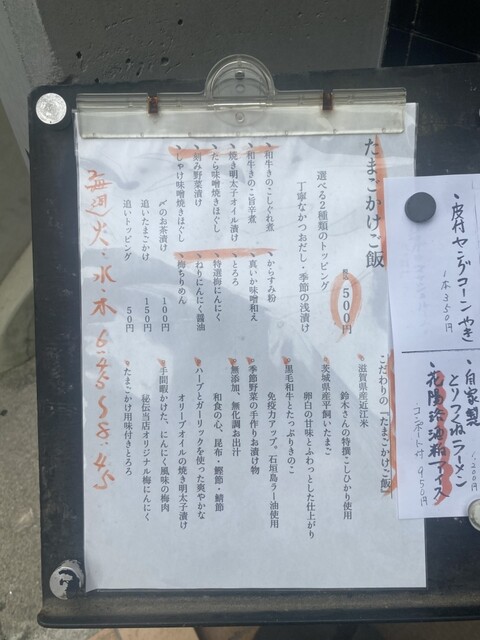 たまごかけご飯
税込500円
選べる2種類のトッピング
丁寧なかつおだし・季節の浅漬け
・和牛きのこしぐれ煮
・和牛きのこ旨辛煮
・焼き明太子オイル漬け
・たら味噌焼きほぐし
・刻み野菜漬け
・しゃけ味噌焼きほぐし
・からすみ粉
・真いか味噌和え
・とろろ
・特選梅にんにく
・ねりにんにく醤油
・梅ちりめん
〆のお茶漬け 100円
追いたまごかけ 150円
追いトッピング 50円
毎週火・水・木 6:45〜8:45
こだわりの「たまごかけご飯」
滋賀県産近江米
鈴木さんの特撰こしひかり使用
茨城県産平飼いたまご
卵白の甘味とふわっとした仕上がり
黒毛和牛とたっぷりきのこ
免疫力アップ。石垣島ラー油使用
季節野菜の手作りお漬け物
無添加、無化調お出汁
和食の心、昆布・鰹節・鯖節
ハーブとガーリックを使った爽やかな
オリーブオイルの焼き明太子漬け
手間暇かけた、にんにく風味の梅肉
秘伝当店オリジナル梅にんにく
たまごかけ用味付きとろろ
・皮付ヤングコーンやき
1本350円
・自家製
とりつくねラーメン
1,200円
・花陽浴酒粕アイス
コンポート付 950円